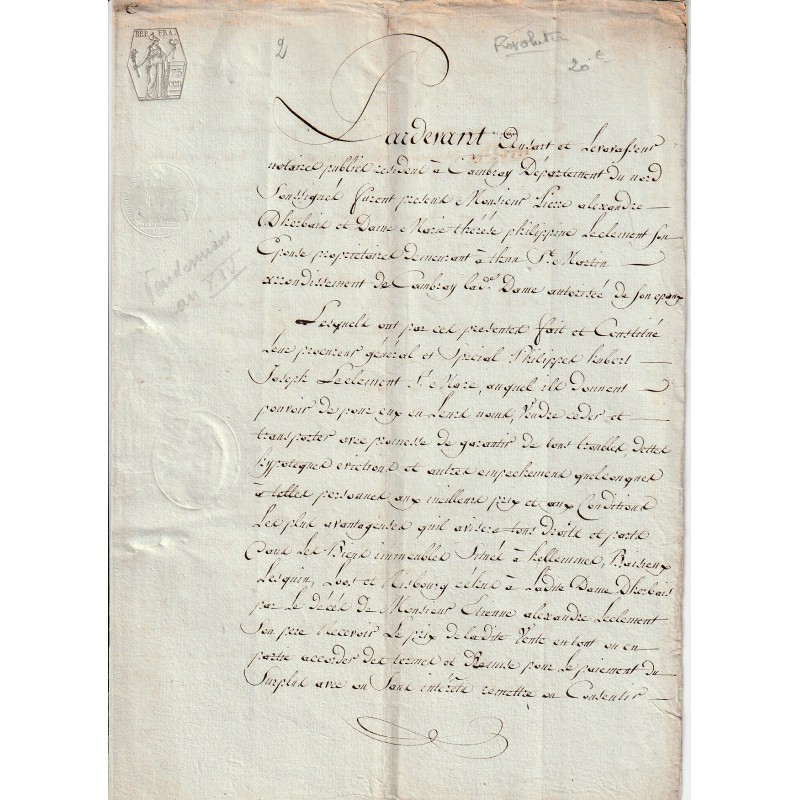 REP. FRA.
75
cen
2
Revolution
20 €
Pardevant Ansart et Levavasseur
notaires publics resident à Cambray Département du nord
Soussignés furent present Monsieur Pierre alexandre
Dherbais et Dame Marie thérèse philippine Leclement Son
Epouse propriétaires demeurant à thun St. Martin
arrondissement de Cambray lade. Dame autorisée de Son epoux
Vendemiaire
an XIV
Lesquels ont par ces presentes fait et Constitué
Leur procureur général et Spécial Philippes hubert
Joseph Leclement St. Marc, auquel ils donnent
pouvoir de pour eux en Leurs noms, Vendre ceder et
transporter avec promesse de garantir de tous troubles, dettes
hypoteques evictions et autres empechement quelconques
à telles personnes aux meilleurs prix et aux Conditions
Les plus avantageuses quil avisera tous droits et parts
dans Les Biens immeubles Situés à hellemmes, Baisieux
Lesquin, Loos et Risbourg échus à Ladite Dame Dherbais
par Le décès de Monsieur Etienne alexandre Leclement
Son pere Recevoir Le prix de ladite Vente en tout ou en
partie accorder des termes et Remise pour Le paiement du
Surplus avec ou Sans intérêts remettre ou Consentir